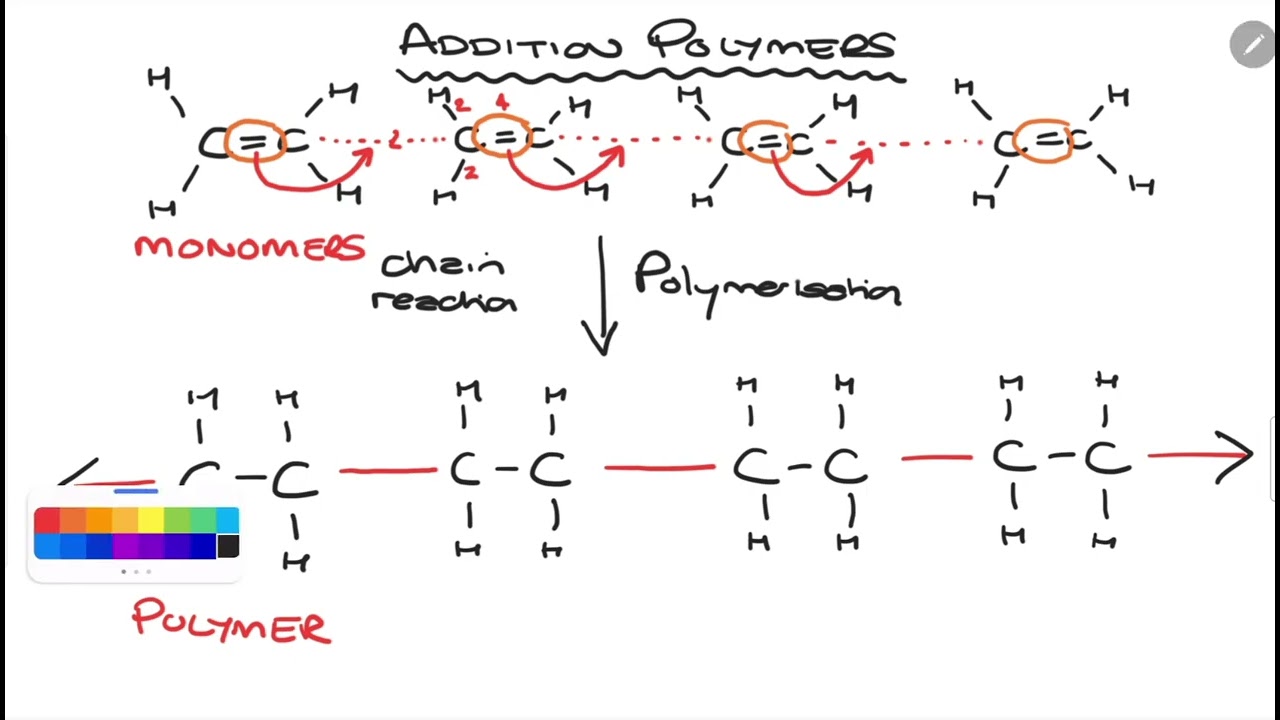 ADDITION POLYMERS
H H H 2 4 H H H H H
C = C 2 C = C C = C C = C
H H H 2 H H H H H
MONOMERS
chain
reaction
Polymerisation
H H H H H H H H
C - C C - C C - C C - C
H H H H H H H
POLYMER